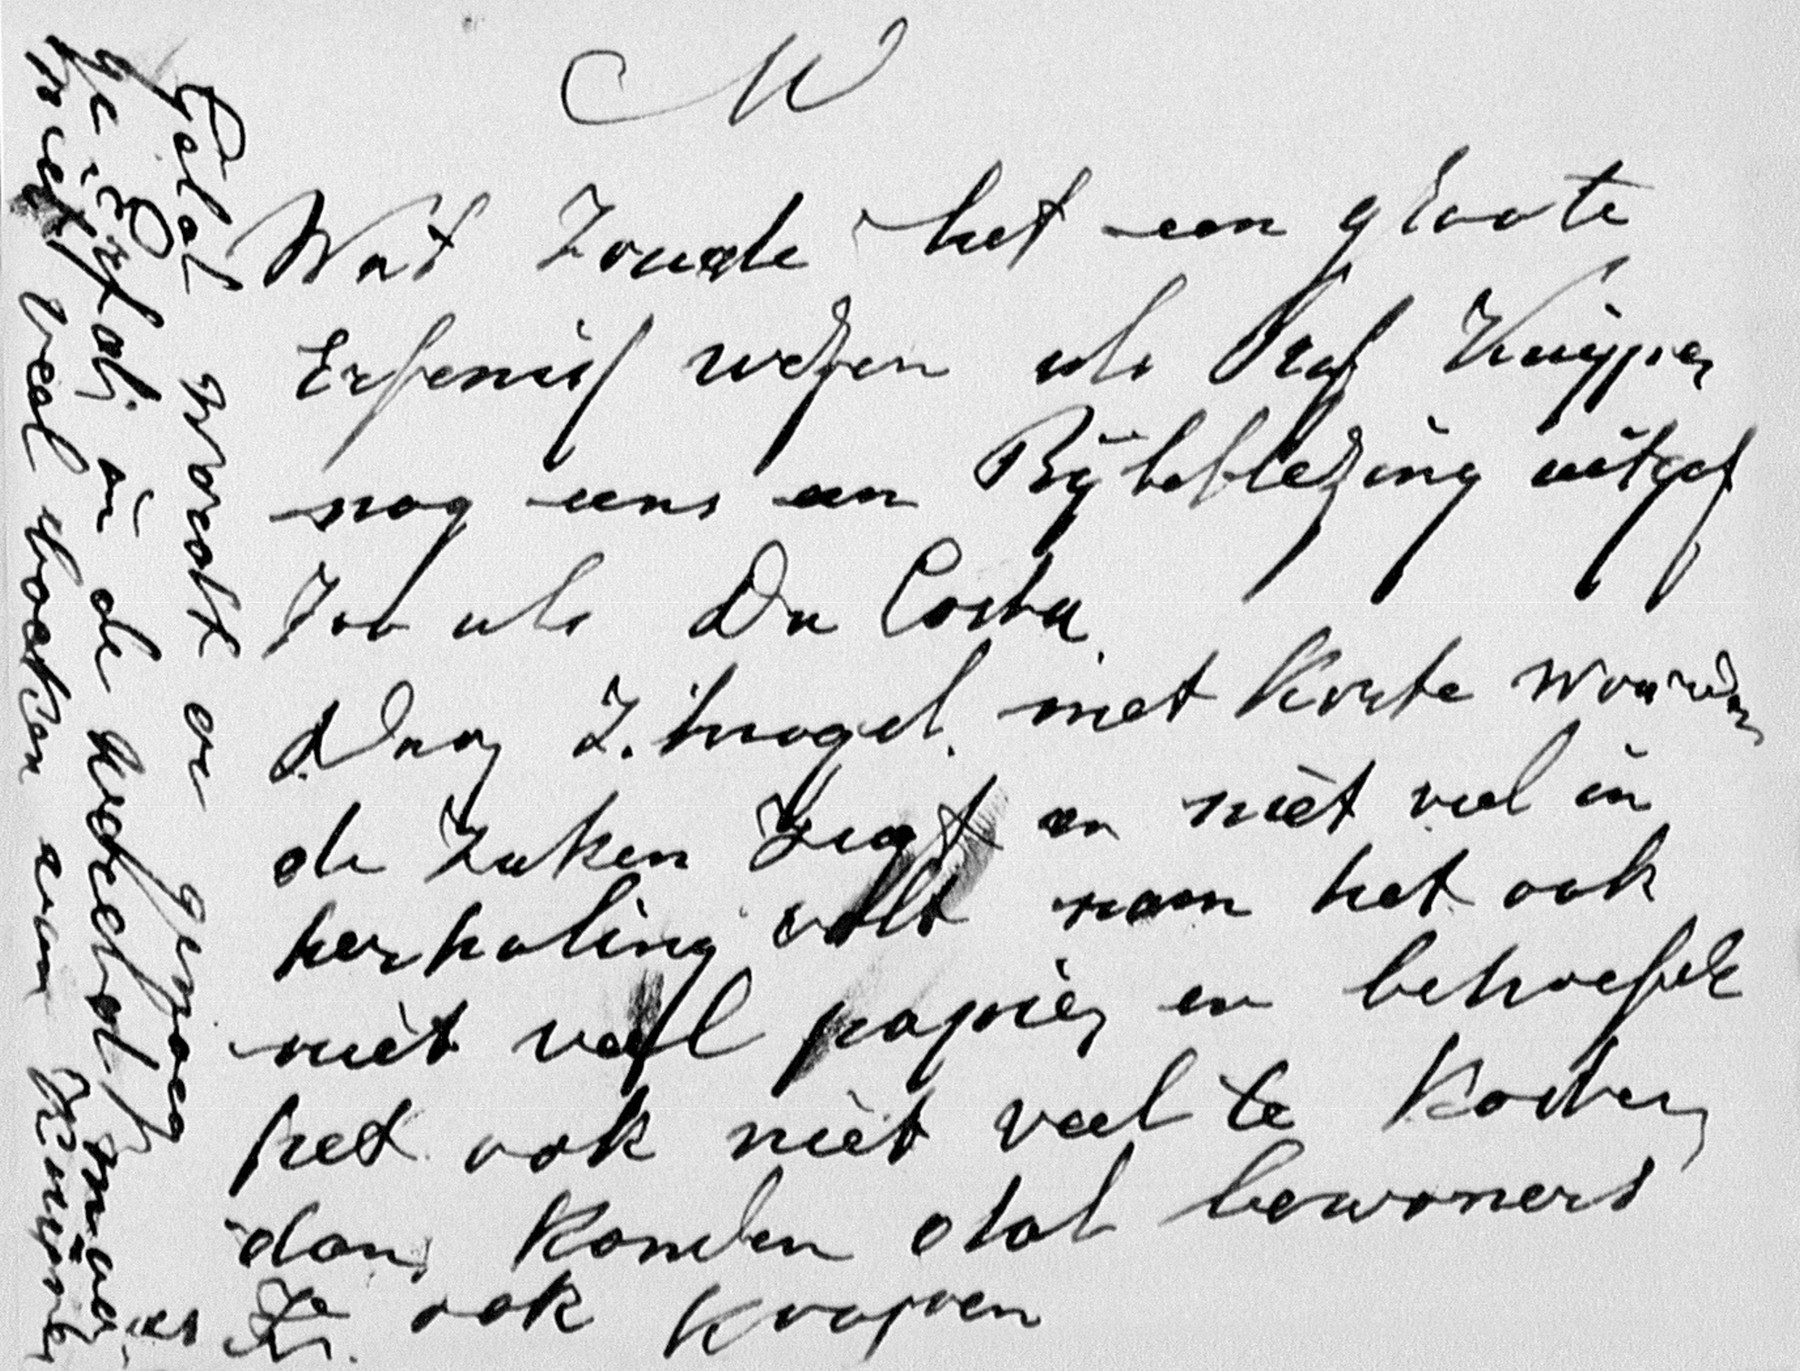 M
Wat zoude het een groote
Erfenis wezen als Prof Kuyper
nog eens een Bijbellezing uitgaf
Zoo als Da Costa
Daar Z. hoogel. met korte woorden
de zaken zegt en niet veel in
herhaling valt nam het ook
niet veel papier en behoefde
het ook niet veel te kosten
dan konden dal bewoners
Ze ook koopen
Geld wordt er genoeg
ge in de wereld maar
niet veel boeken van